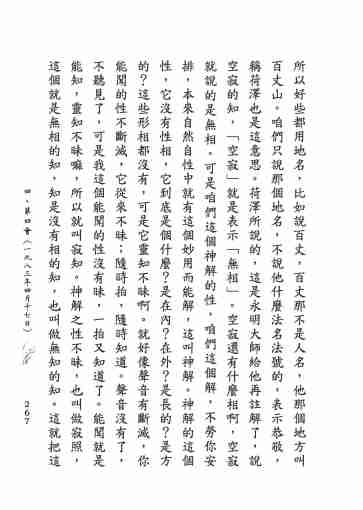 所以好些都用地名，比如說百丈，百丈那不是人名，他那個地方叫
百丈山。咱們只說那個地名，不說他什麼法名法號的。表示恭敬，
稱荷澤也是這意思。荷澤所說的，這是永明大師給他再註解了，說
空寂的知，「空寂」就是表示「無相」。空寂還有什麼相啊，空寂
就說的是無相。可是咱們這個神解的性，咱們這個解，不勞你安
排，本來自然自性中就有這個妙用而能解，這叫神解。神解的這個
性，它沒有性相，它到底是個什麼？是在內？在外？是長的？是方
的？這些形相都沒有，可是它靈知不昧啊。就好像聲音有斷滅，你
能聞的性不斷滅，它從來不昧；隨時拍，隨時知道。聲音沒有了，
不聽見了，可是我這個能聞的性沒有昧，一拍又知道了。能聞就是
能知，靈知不昧嘛，所以就叫寂知。神解之性不昧，也叫做寂照，
這個就是無相的知，知是沒有相的知，也叫做無知的知。這就把這
四、第四會（一九八三年四月十七日）
267